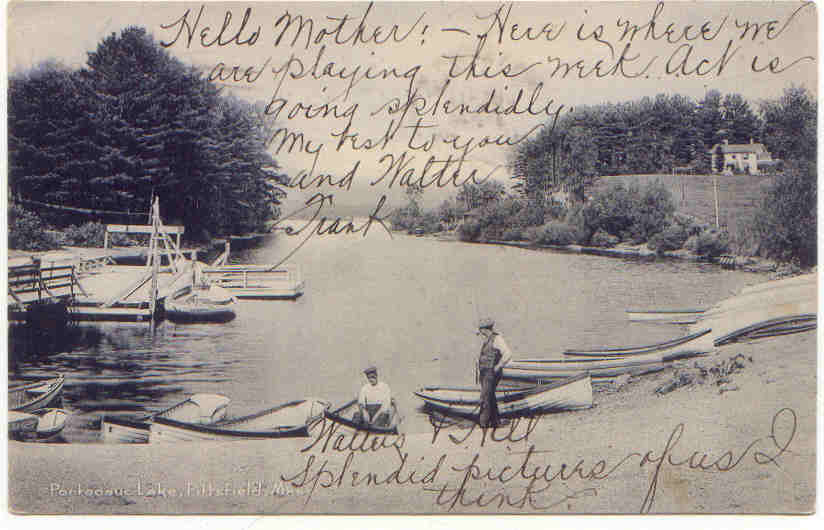 Hello Mother! - Here is where we
are playing this week. Act is
going splendidly.
My best to you
and Walter
Frank
Walters & Hill
Splendid pictures of us I
think.
Pontoosuc Lake, Pittsfield, Mass.